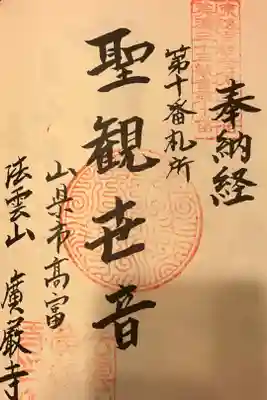 奉納経
第十番札所
聖観世音
山県市高富
法雲山 廣厳寺